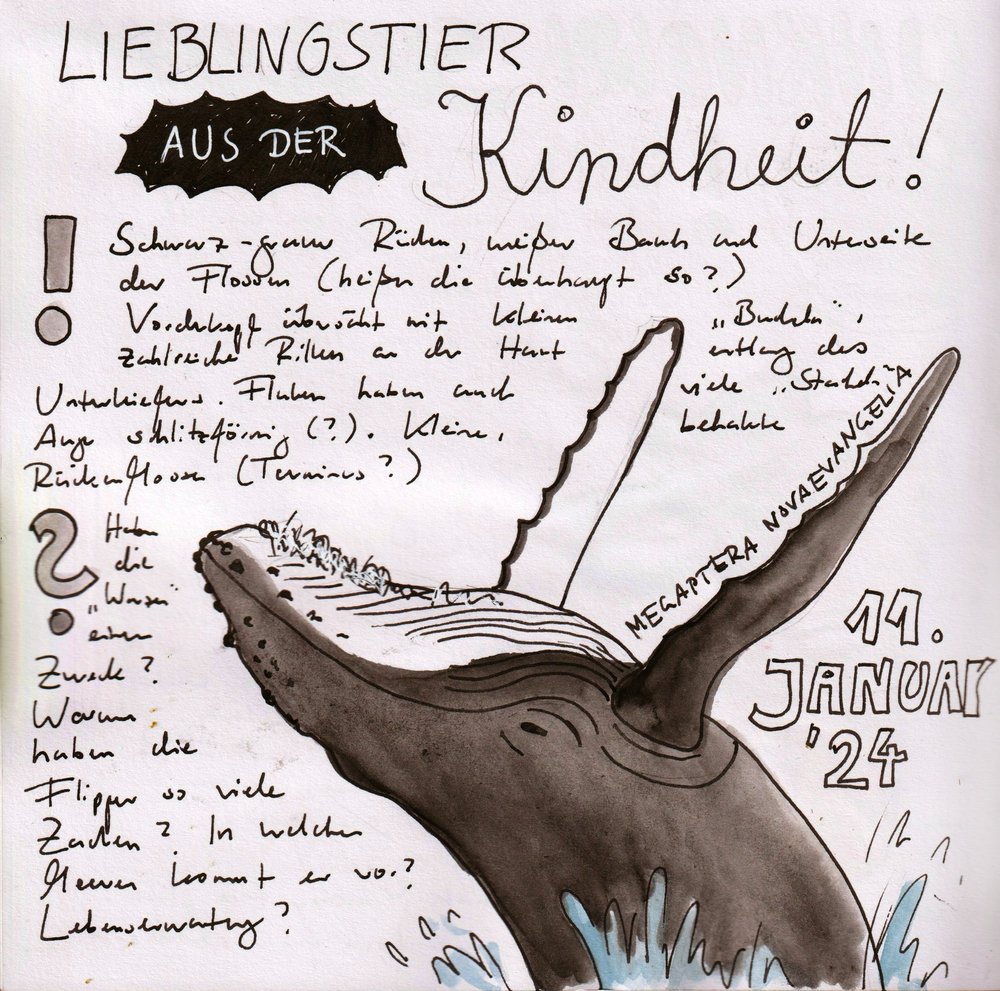 LIEBLINGSTIER
AUS DER
Kindheit!
Schwarz-grauer Rücken, weißer Bauch und Unterseite
der Flossen (heißen die überhaupt so?)
Vorderkopf übersäht mit kleinen „Buckeln“,
zahlreiche Rillen an der Haut entlang des
Unterkiefers. Fluken haben auch viele „Stacheln“
Auge schlitzförmig (?). Kleine, behakte
Rückenflosse (Terminus?)
Haben
die
„Warzen“
einen
Zweck?
Warum
haben die
Flipper so viele
Zacken? In welchen
Meeren kommt er vor?
Lebenserwartung?
MEGAPTERA NOVAEVANGELIA
11.
JANUAR
'24